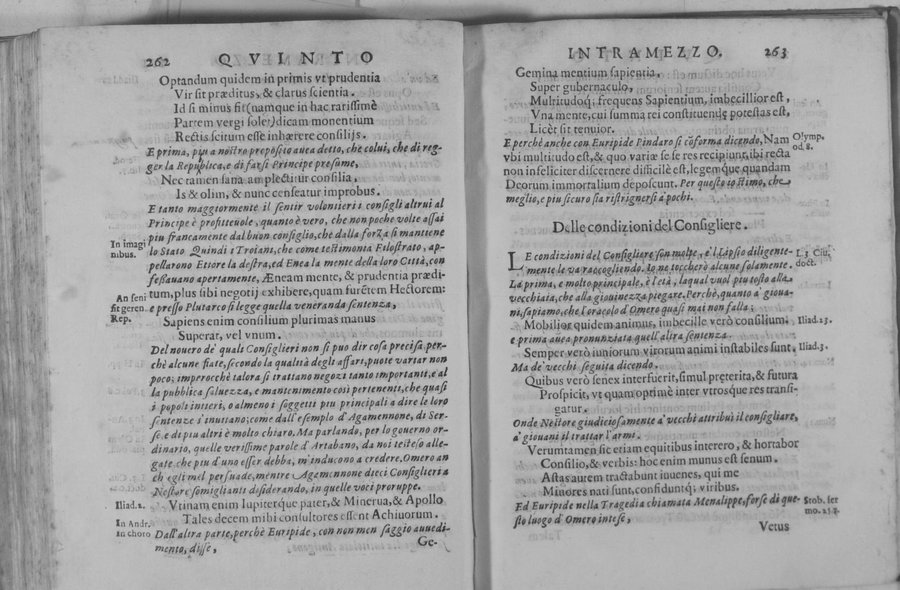 262 QVINTO
Optandum quidem in primis vt prudentia
Vir sit præditus, & clarus scientia.
Id si minus fit (namque in hac rarissimè
Partem vergi solet) dicam monentium
Rectis scitum esse inhærere consilijs.
E prima, più a nostro proposito auea detto, che colui, che di reg-
ger la Republica, e di farsi Principe presume,
Nec tamen sana am plectitur consilia,
Is & olim, & nunc censeatur improbus.
E tanto maggiormente il sentir volontieri i consigli altrui al
Principe è profitteuole, quanto è vero, che non poche volte assai
più francamente dal buon consiglio, che dalla forza si mantiene
In imagi
nibus.
lo Stato Quindi i Troiani, che come testimonia Filostrato, ap-
pellarono Ettore la destra, ed Enea la mente della loro Città, con
fessauano apertamente, Æneam mente, & prudentia prædi-
An seni
sit geren.
Rep.
tum, plus sibi negotij exhibere, quam furētem Hectorem:
e presso Plutarco si legge quella veneranda sentenza,
Sapiens enim consilium plurimas manus
Superat, vel vnum.
Del nouero de' quali Consiglieri non si puo dir cosa precisa, per-
chè alcune fiate, secondo la qualità degli affari, puote variar non
poco; imperochè talora si trattano negozi tanto importanti, e al
la pubblica saluezza, e mantenimento così pertenenti, che quasi
i popoli intieri, o almeno i soggetti piu principali a dire le loro
sentenze s'inuitano; come dall'esempio d'Agamennone, di Ser-
se, e di piu altri è molto chiaro. Ma parlando, per lo gouerno or-
dinario, quelle verissime parole d'Artabano, da noi testeso alle-
gate, che piu d'uno esser debba, m'inducono a credere. Omero an
ch egli mel persuade, mentre Agamennone dieci Consiglieri a
Nestore somiglianti disiderando, in quelle voci proruppe.
Iliad. 2.
Vtinam enim Iupiterque pater, & Minerua, & Apollo
Tales decem mihi consultores essent Achiuorum.
In Andr.
in choro
Dall'altra parte, perchè Euripide, con non men saggio auuedi-
mento, disse,
Ge-
INTRAMEZZO. 263
Gemina mentium sapientia,
Super gubernaculo,
Multitudoq; frequens Sapientium, imbecillior est,
Vna mente, cui summa rei constituendę potestas est,
Licèt sit tenuior.
E perchè anche con Euripide Pindaro si cōforma dicendo, Nam
Olymp.
od. 8.
vbi multitudo est, & quo variæ se se res recipiunt, ibi recta
non infeliciter discernere difficilè est, legemque quandam
Deorum immortalium deposcunt. Per questo io stimo, che
meglio, e piu sicuro sia ristrignersi a pochi.
Delle condizioni del Consigliere.
LE condizioni del Consigliere son molte, e'l Lipsio diligente-
mente le va raccogliendo. Io ne toccherò alcune solamente.
L. 3 Ciu.
doct.
La prima, e molto principale, è l'età, la qual vuol piu tosto alla
vecchiaia, che alla giouinezza piegare. Perchè, quanto a' gioua-
ni, sapiamo, che l'oracolo d'Omero quasi mai non falla;
Mobilior quidem animus, imbecille verò consilium;
Iliad. 23.
e prima auea pronunziata quell'altra sentenza.
Semper verò iuniorum virorum animi instabiles sunt.
Iliad. 3.
Ma de' vecchi seguita dicendo.
Quibus verò senex interfuerit, simul preterita, & futura
Prospicit, vt quam optimè inter vtrosque res transi-
gatur.
Onde Nestore giudiciosamente a' vecchi attribuì il consigliare,
a' giouani il trattar l'armi.
Verumtamen sic etiam equitibus interero, & hortabor
Consilio, & verbis: hoc enim munus est senum.
Astas autem tractabunt iuuenes, qui me
Minores nati sunt, confiduntq; viribus.
Ed Euripide nella Tragedia chiamata Menalippe, forse di que-
Stob. ser
mo. 257.
sto luogo d'Omero intese,
Vetus